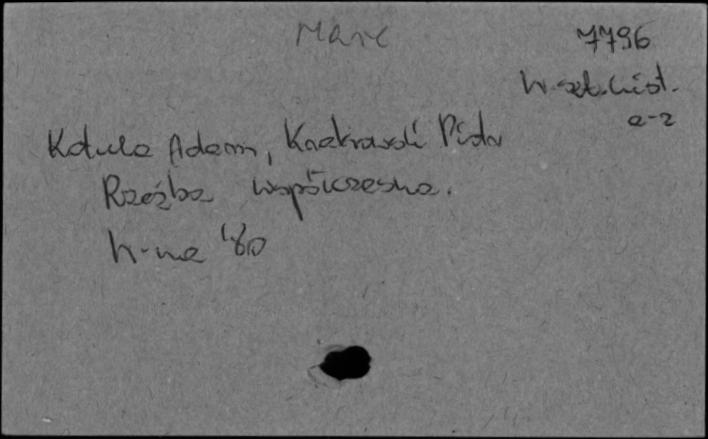 Marc
7796
W-szt.hist.
a-z
Kotula Adam, Krakowski Piotr
Rzeźba współczesna.
W-wa '80